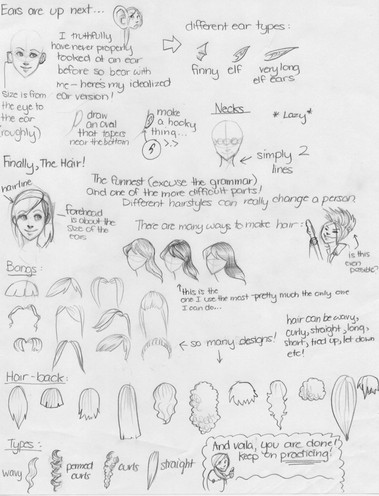 Ears are up next...
I truthfully
have never properly
looked at an ear
before so bear with
me - here's my idealized
ear version!
different ear types:
finny
elf
very long
elf ears
Size is from
the eye to
the ear
(roughly)
draw
an oval
that tapers
near the bottom
make
a hooky
thing...
>.>
Necks
*Lazy*
simply 2
lines
Finally, The Hair!
hairline
The funnest (excuse the grammar)
And one of the more difficult parts!
Different hairstyles can really change a person
forehead
is about the
size of the
ears
There are many ways to make hair:
is this
even
possible?
this is the
one I use the most - pretty much the only one
I can do...
Bangs:
so many designs!
hair can be wavy,
curly, straight, long,
short, tied up, let down
etc!
Hair-back:
Types:
wavy
permed
curls
curls
straight
And voila, you are done!
keep on practicing!